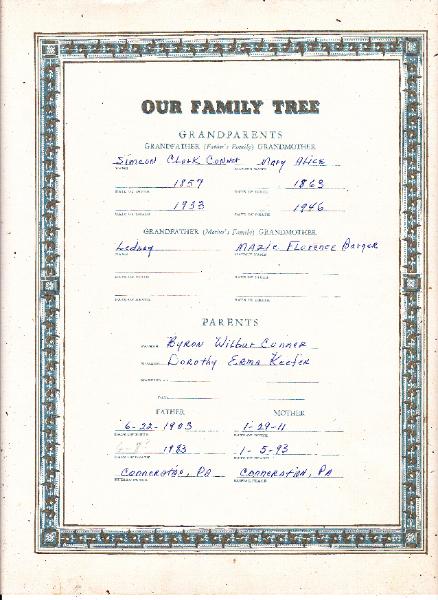 OUR FAMILY TREE
GRANDPARENTS
GRANDFATHER (Father's Family) GRANDMOTHER
Simeon Clark Conner Mary Alice
NAME MAIDEN NAME
1857 1863
DATE OF BIRTH DATE OF BIRTH
1933 1946
DATE OF DEATH DATE OF DEATH
GRANDFATHER (Mother's Family) GRANDMOTHER
Mazie Florence Barger
NAME MAIDEN NAME
DATE OF BIRTH DATE OF BIRTH
DATE OF DEATH DATE OF DEATH
PARENTS
FATHER Byron Wilbur Conner
MOTHER Dorothy Erma Keefer
MARRIED AT
DATE
FATHER MOTHER
6-22-1903 1-29-11
DATE OF BIRTH DATE OF BIRTH
1983 1-5-93
DATE OF DEATH DATE OF DEATH
PA PA
BURIAL PLACE BURIAL PLACE